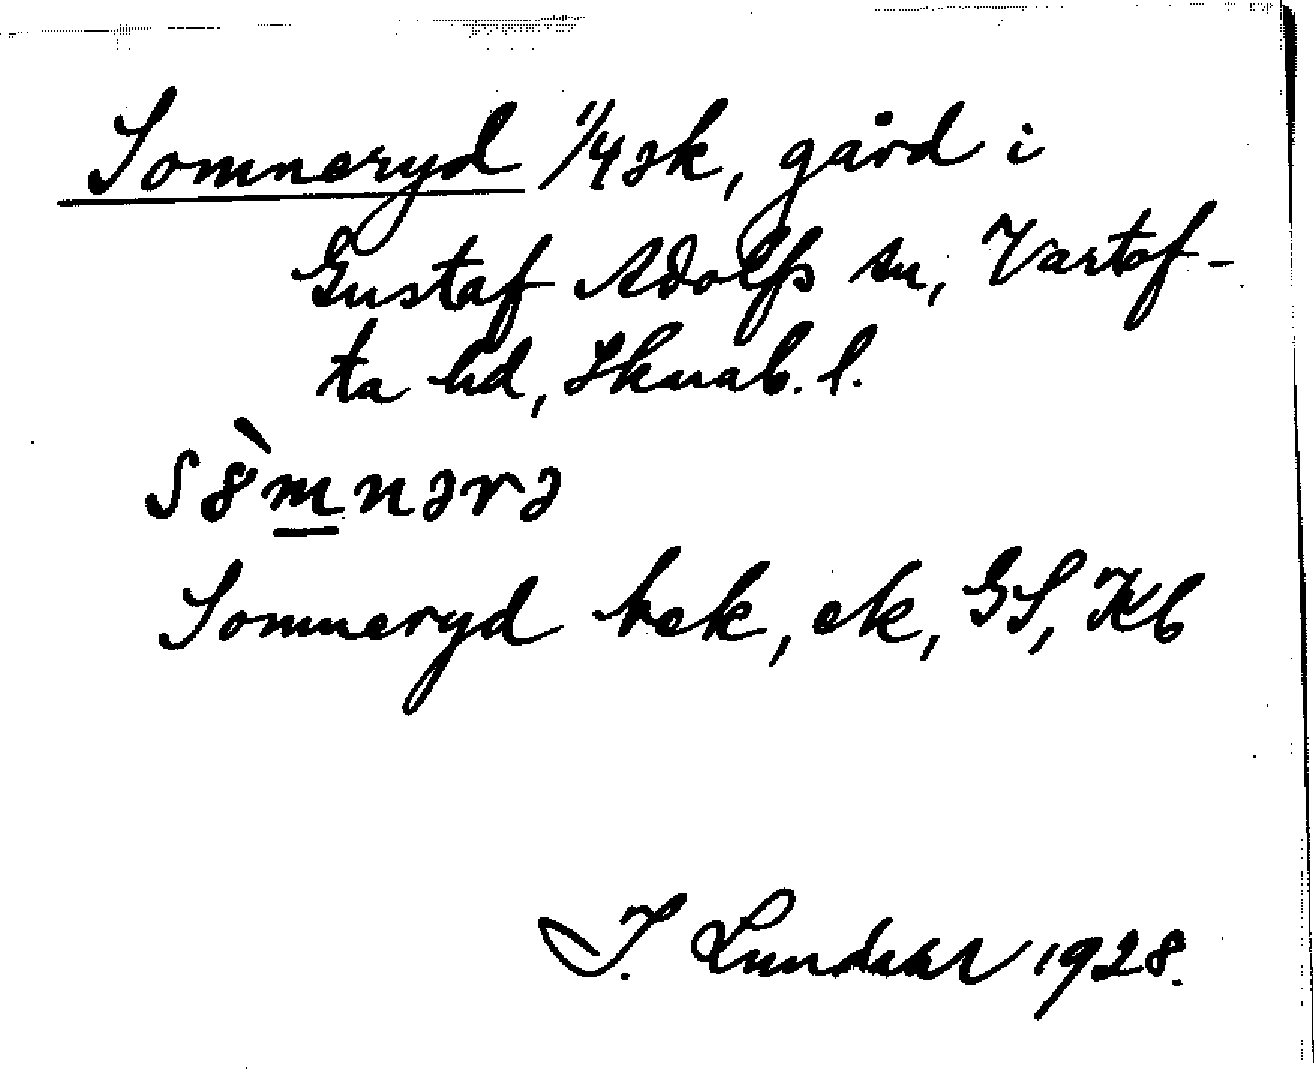 Somneryd 1/4 sk, gård i
Gustaf Adolfs sn, Vartof-
ta hd, Skarab. l.
s8̀m̲nərə
Somneryd bek, ek, GS, Kb
J. Lundahl 1928.